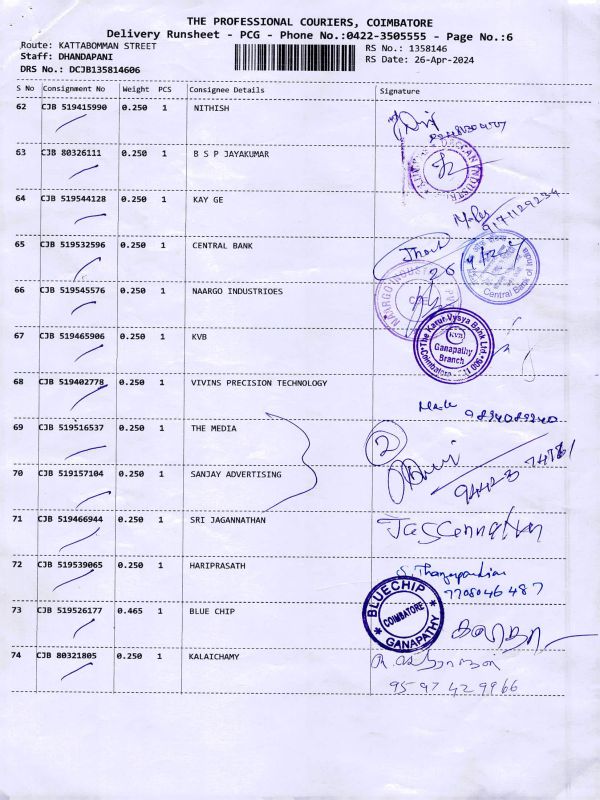 THE PROFESSIONAL COURIERS, COIMBATORE
Delivery Runsheet - PCG - Phone No.:0422-3505555 - Page No.:6
Route: KATTABOMMAN STREET
RS No.: 1358146
Staff: DHANDAPANI
RS Date: 26-Apr-2024
DRS No.: DCJB135814606
S No Consignment No Weight PCS Consignee Details Signature
62 CJB 519415990 0.250 1 NITHISH
63 CJB 80326111 0.250 1 B S P JAYAKUMAR
64 CJB 519544128 0.250 1 KAY GE
9171129234
65 CJB 519532596 0.250 1 CENTRAL BANK
Central Bank of India
26
66 CJB 519545576 0.250 1 NAARGO INDUSTRIOES
NAARGO INDUSTRI
CBE
67 CJB 519465906 0.250 1 KVB
The Karur Vysya Bank Ltd.
KVB
Ganapathy
Branch
68 CJB 519402778 0.250 1 VIVINS PRECISION TECHNOLOGY
9894089240
69 CJB 519516537 0.250 1 THE MEDIA
2
70 CJB 519157104 0.250 1 SANJAY ADVERTISING
94423 74781
71 CJB 519466944 0.250 1 SRI JAGANNATHAN
72 CJB 519539065 0.250 1 HARIPRASATH
S. Thangapandian
7708046487
73 CJB 519526177 0.465 1 BLUE CHIP
BLUECHIP
COIMBATORE
GANAPATHY
74 CJB 80321805 0.250 1 KALAICHAMY
9597429966